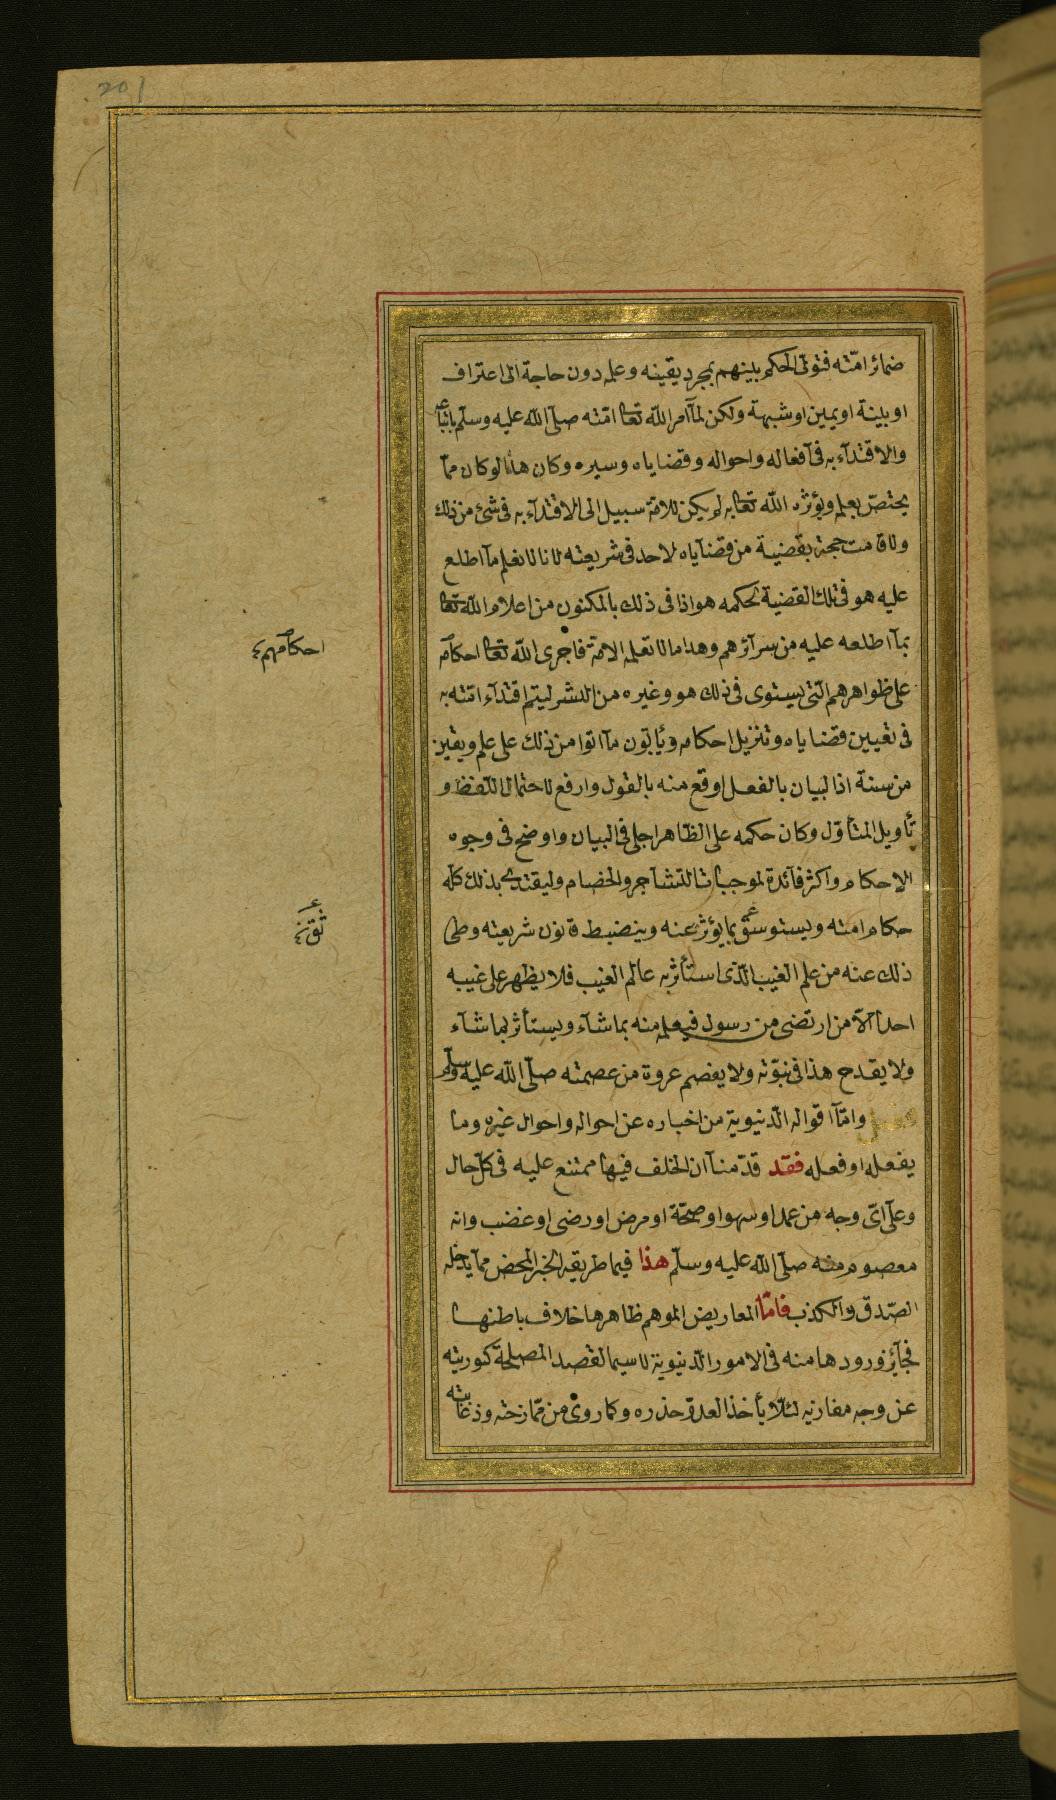 201
ضمائر امّته فتولّى الحكم بينهم بمجرد يقينه وعلمه دون حاجة الى اعتراف
او بينة او يمين او شبهة ولكن لمآ امر اللّه تعا امّته صلّى اللّه عليه وسلّم باتباعه
والاقتدآء به فى آفعاله واحواله وقضاياه وسيره وكان هذا لو كان ممّا
يختصّ بعلمه ويؤثره اللّه تعا به لم يكن للامة سبيل الى الاقتدآء به فى شئ من ذلك
ولا قامت حجة بقضية من قضآياه لاحد فى شريعته لانا لا نعلم مآ اطلع
عليه هو فى تلك القضية لحكمه هو اذا فى ذلك بالمكنون من اعلام اللّه تعا
بمآ اطلعه عليه من سرآئرهم وهذا ما لا تعلمه الامة فاجرى اللّه تعا احكامه
على ظواهرهم الّتى يستوى فى ذلك هو وغيره من البشر ليتم اقتدآء امّته به
فى تعيين قضاياه وتنزيل احكامه ويأتون مآ اتوا من ذلك على علم ويقين
من سنته اذ البيان بالفعل اوقع منه بالقول وارفع لاحتمال اللّفظ و
تأويل المتأوّل وكان حكمه على الظّاهر اجلى فى البيان واوضح فى وجوه
الاحكام واكثر فآئدة لموجبات التشاجر والخصام وليقتدى بذلك كلّه
حكام امته ويستوسق بما يؤثر عنه وينضبط قانون شريعته وطى
ذلك عنه من علم الغيب الّذى استأثر به عالم الغيب فلا يظهر على غيبه
احدا الّا من ارتضى من رسول فيعلمه منه بما شآء ويستأثر بما شآء
ولا يقدح هذا فى نبوّته ولا يفصم عروة من عصمته صلّى اللّه عليه وسلّم
فصل وامّآ اقواله الدّنيوية من اخباره عن احواله واحوال غيره وما
يفعله او فعله فقد قدّمنآ ان الخلف فيها ممتنع عليه فى كلّ حال
وعلى اىّ وجه من عمد او سهو او صحّة او مرض او رضى او غضب وانه
معصوم منه صلّى اللّه عليه وسلّم هذا فيما طريقه الخبر المحض ممّا يدخله
الصّدق والكذب فامّا المعاريض الموهم ظاهرها خلاف باطنها
فجآئز ورودها منه فى الامور الدّنيوية لا سيما لقصد المصلحة كتوريته
عن وجه مغازيه لئلّا يأخذ العدوّ حذره وكما روى من ممّازحته ودعابته
احكامهم